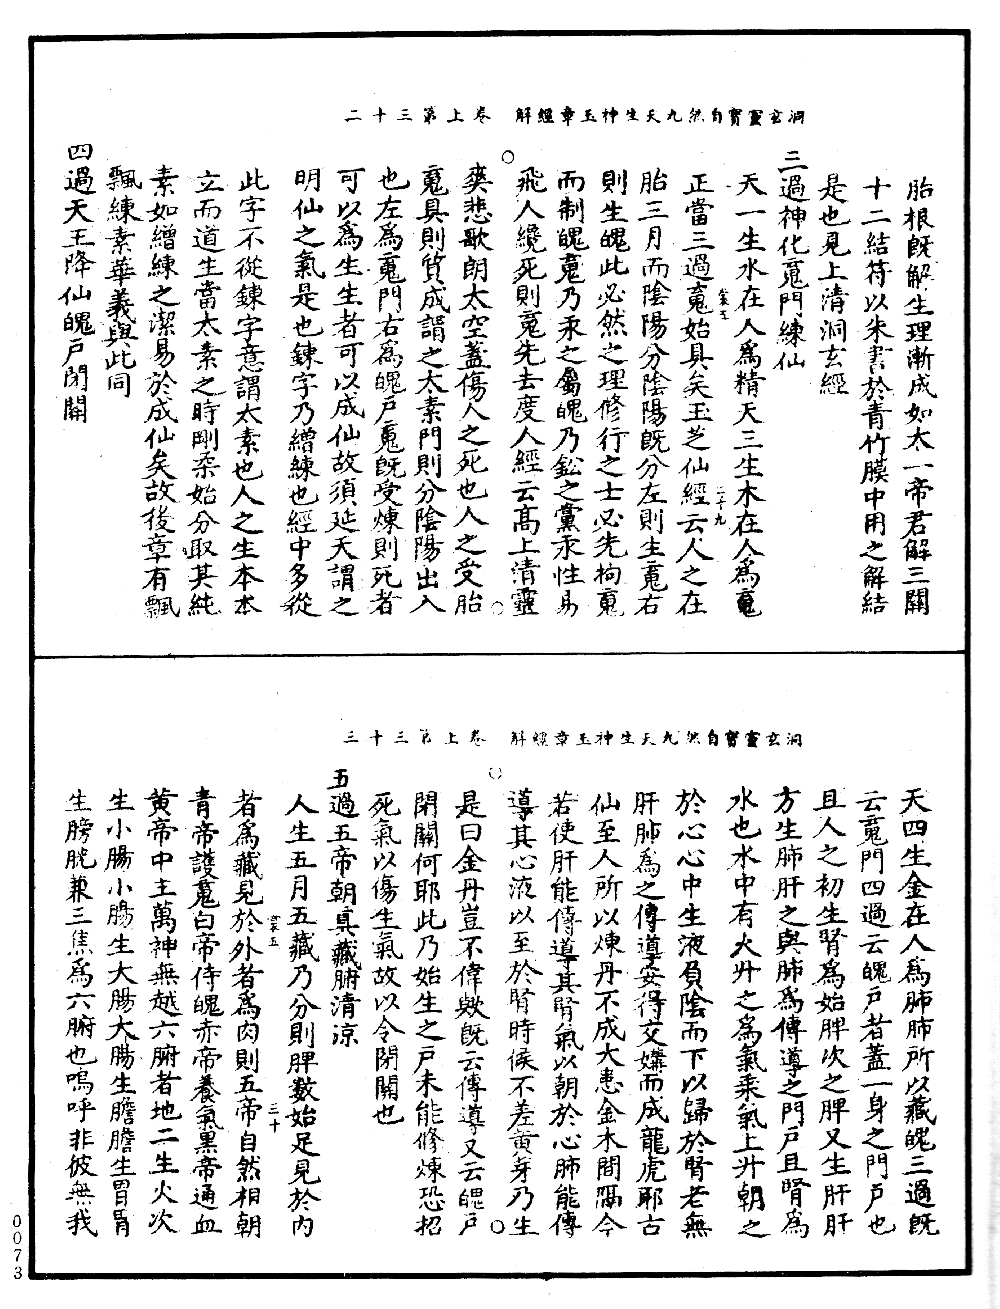 洞玄靈寶自然九天生神玉章經解　卷上第三十二
胎根既解生理漸成如太一帝君解三關
十二結符以朱書於青竹膜中用之解結
是也見上清洞玄經
三過神化䰟門練仙
天一生水在人爲精天三生木在人爲䰟
正當三過䰟始具矣玉芝仙經云人之在
胎三月而陰陽分陰陽既分左則生䰟右
則生魄此必然之理修行之士必先拘䰟
而制魄䰟乃汞之屬魄乃鈆之黨汞性易
飛人纔死則䰟先去度人經云高上清靈
爽悲歌朗太空蓋傷人之死也人之受胎
䰟具則質成謂之太素門則分陰陽出入
也左爲䰟門右爲魄戶䰟既受煉則死者
可以爲生生者可以成仙故須延天謂之
明仙之氣是也鍊字乃繒練也經中多從
此字不從鍊字意謂太素也人之生本本
立而道生當太素之時剛柔始分取其純
素如繒練之潔易於成仙矣故後章有飄
飄練素華義與此同
四過天王降仙魄戶閉關
洞玄靈寶自然九天生神玉章經解　卷上第三十三
天四生金在人爲肺肺所以藏魄三過既
云䰟門四過云魄戶者蓋一身之門戶也
且人之初生腎爲始脾次之脾又生肝肝
方生肺肝之與肺爲傳導之門戶且腎爲
水也水中有火升之爲氣乘氣上升朝之
於心心中生液負陰而下以歸於腎若無
肝肺爲之傳導安得交媾而成龍虎耶古
仙至人所以煉丹不成大患金木間隔今
若使肝能傳導其腎氣以朝於心肺能傳
導其心液以至於腎時候不差黄芽乃生
是曰金丹豈不偉歟既云傳導又云魄戶
閉關何耶此乃始生之戶未能修煉恐招
死氣以傷生氣故以令閉關也
五過五帝朝真藏腑清凉
人生五月五藏乃分則脾數始足見於内
者爲藏見於外者爲肉則五帝自然相朝
青帝護䰟白帝侍魄赤帝養氣黑帝通血
黄帝中主萬神無越六腑者地二生火次
生小腸小腸生大腸大腸生膽膽生胃胃
生膀胱兼三焦爲六腑也嗚呼非彼無我
二十九
三十
0073